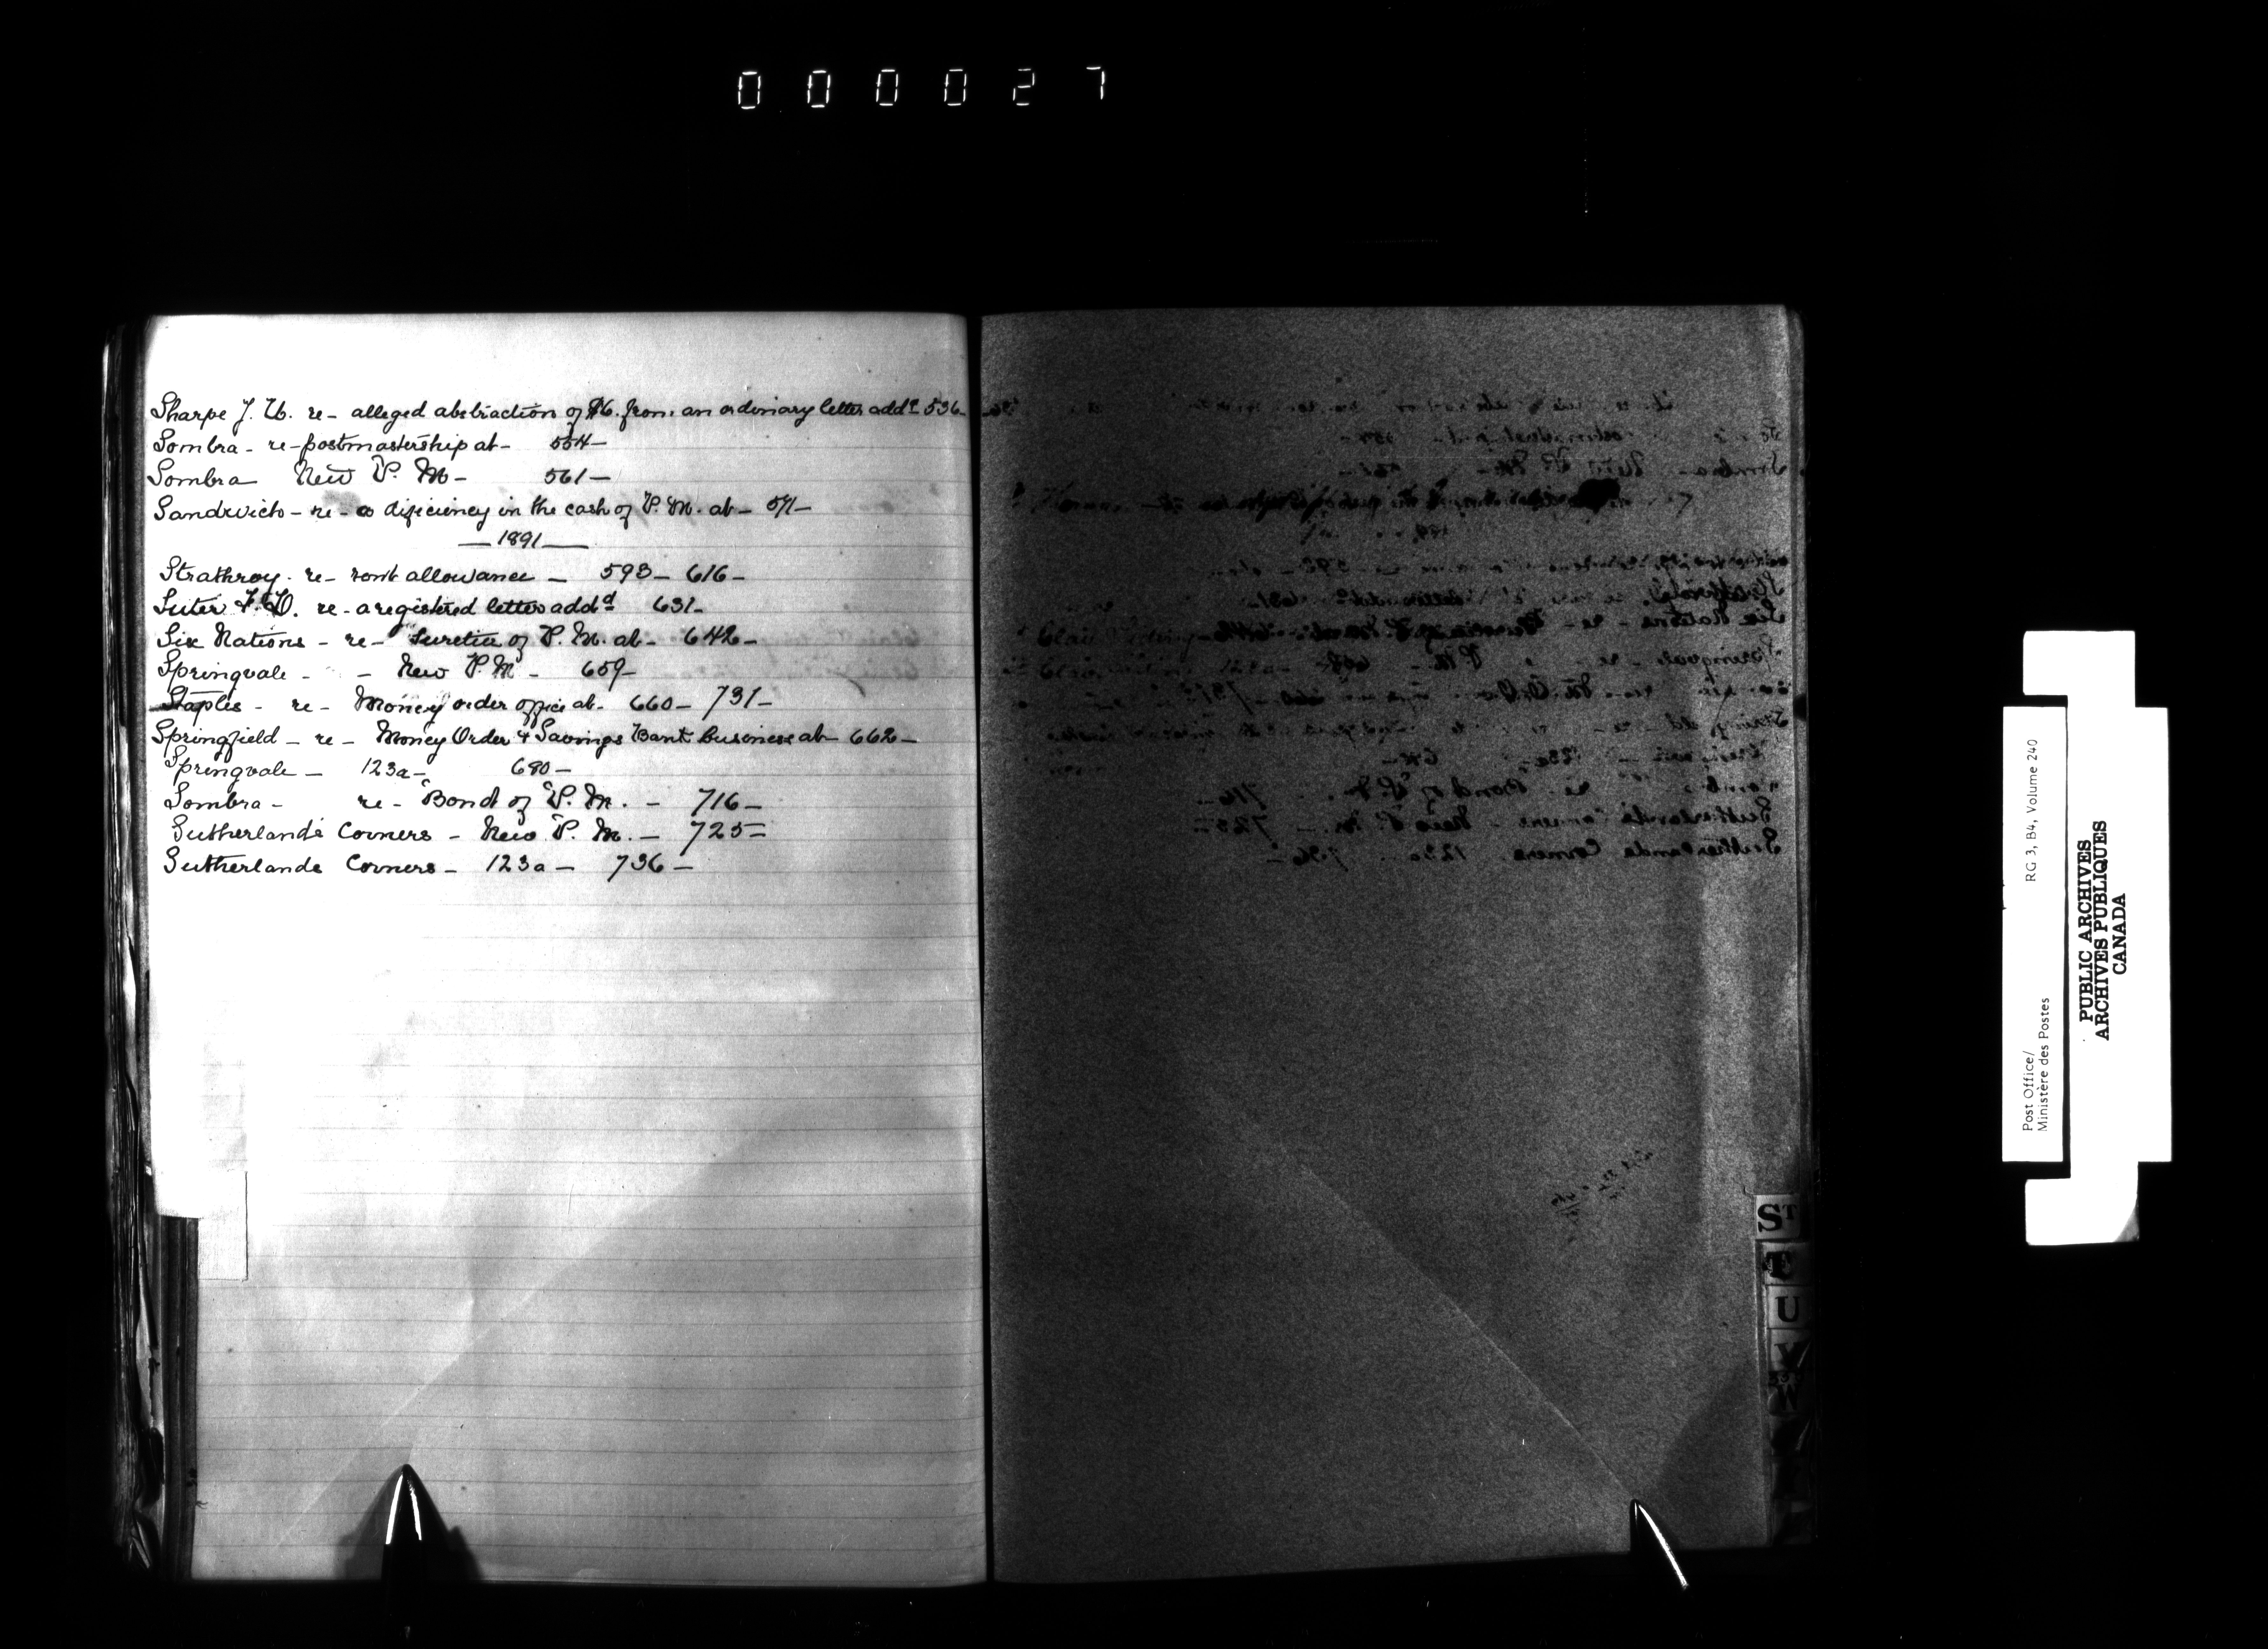 000027
Sharpe J. H. re- alleged abstraction of $6. from an ordinary letter addd 536-
Sombra - re- postmastership at- 554-
Sombra New P. M- 561-
Sandwich- re- a dificiency in the cash of P. M. at- 571-
- 1891 -
Strathroy- re- rent allowance - 593- 616-
Suter F. D. re- a registered letter addd 631-
Six Nations - re- Sureties of P. M. at- 642-
Springvale - - New P. M - 659-
Staples - re- Money order office at- 660- 731-
Springfield - re- Money Order & Savings Bank business at- 662-
Springvale - 123a- 680-
Sombra - re- Bond of P. M. - 716-
Sutherland's Corners - New P. M. - 725-
Sutherlands Corners - 123a - 736 -
ST
T
U
V
W
Post Office/
Ministère des Postes
RG 3, B4, Volume 240
PUBLIC ARCHIVES
ARCHIVES PUBLIQUES
CANADA